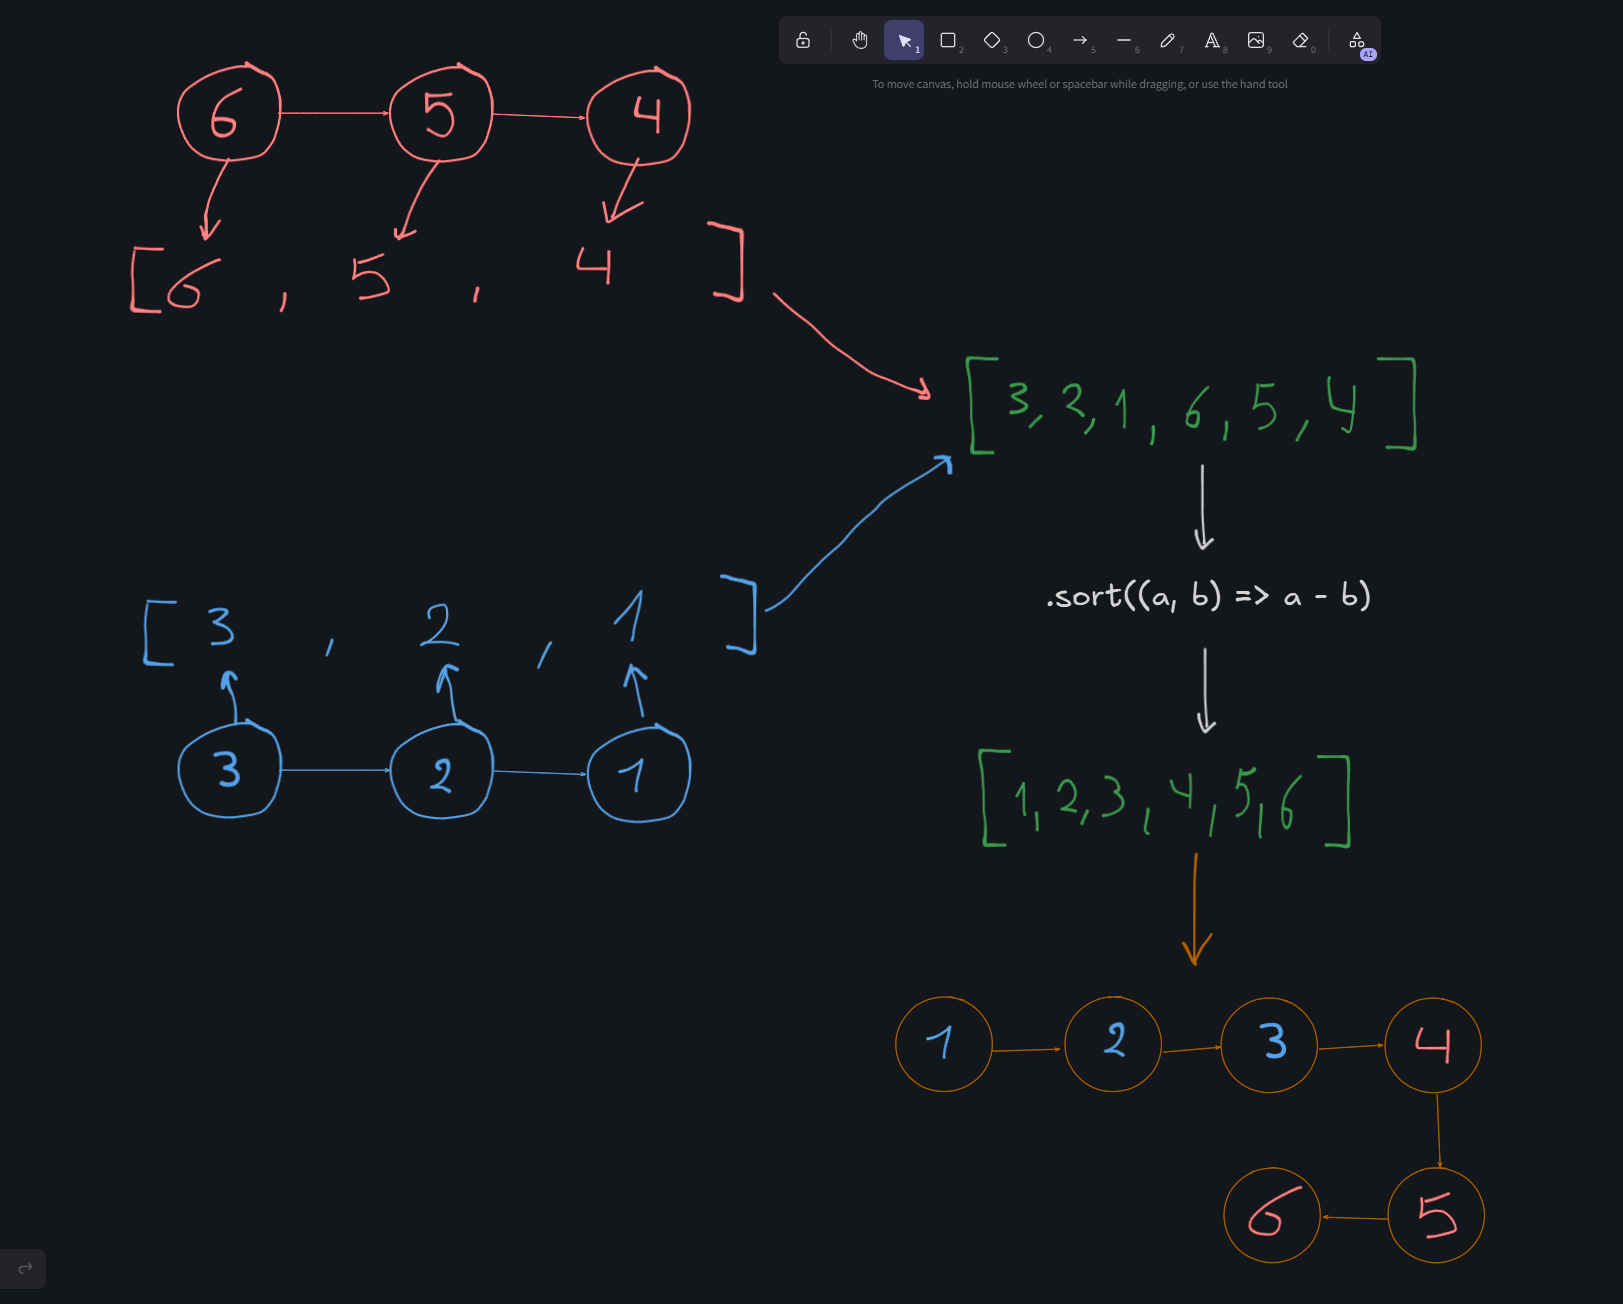 1 2 3 4 5 6 7 8 9 0
AI
To move canvas, hold mouse wheel or spacebar while dragging, or use the hand tool
6 5 4
[6, 5, 4]
[3, 2, 1, 6, 5, 4]
.sort((a, b) => a - b)
[3, 2, 1]
3 2 1
[1, 2, 3, 4, 5, 6]
1 2 3 4
6 5